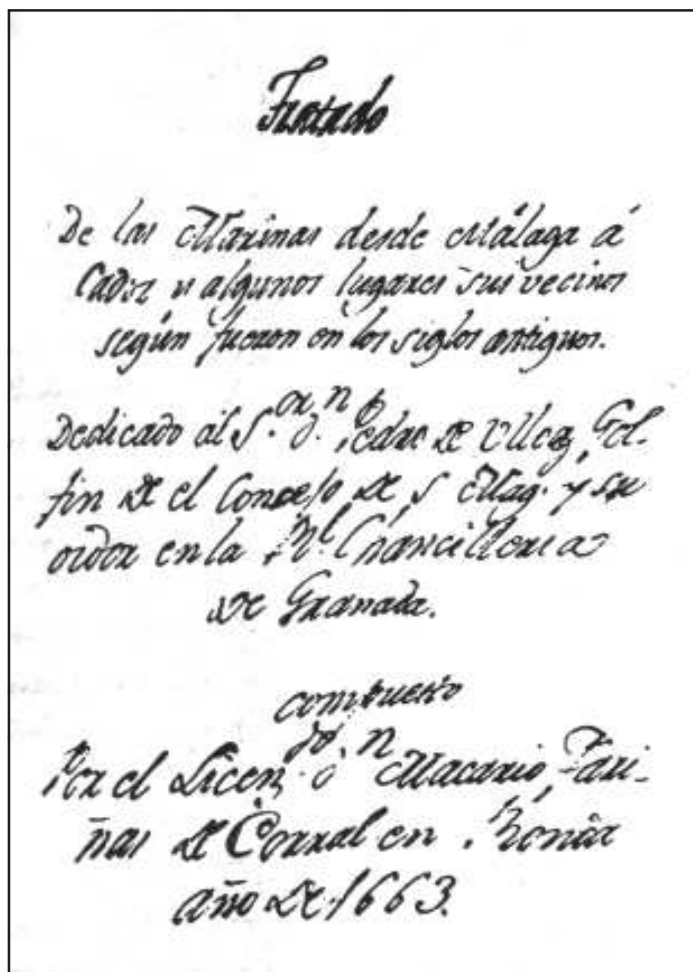 Tratado
De las Marinas desde Málaga á
Cadiz y algunos lugares sus vecinos
según fueron en los siglos antiguos.
Dedicado al S.or D.n Pedro de Ulloa, Gol-
fin de el Concejo de S Mag. y su
oidor en la R.l Chancilleria
de Granada.
compuesto
Por el Licen.do D.n Macario Fari-
ñas de Corral en Ronda
año de 1663.